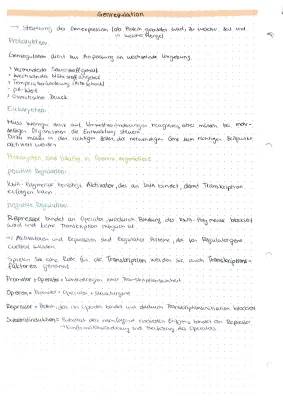 Genregulation
→ Steuerung der Genexpression (ob Protein gebildet wird), zu welcher Zeit und
in welcher Menge
Prokaryoten
Genregulation dient zur Anpassung an wechselnde Umgebung
• wechselnde Sauerstoffgehalt
• wechselnde Nährstoffangebot
• Temperaturänderung (Hitzeschock)
• pH-Wert
• Osmotischer Druck
Eukaryoten
Muss weniger direkt auf Umweltveränderungen reagieren, aber müssen bei mehr-
zelligen Organismen die Entwicklung steuern
Dafür müssen in den richtigen Zellen die notwendigen Gene zum richtigen Zeitpunkt
aktiviert werden
Prokaryoten sind häufig in Operons organisiert
positive Regulation:
RNA-Polymerase benötigt Aktivator, der an DNA bindet, damit Transkription
erfolgen kann
negative Regulation:
Repressor bindet an Operator, wodurch Bindung der RNA-Polymerase blockiert
wird und keine Transkription möglich ist
→ Aktivatoren und Repressoren sind Regulator Proteine, die von Regulatorgene
codiert werden
Spielen sie eine Rolle für die Transkription werden sie auch Transkriptions-
faktoren genannt
Promotor + Operator =
Operon = Promotor + Operator + Strukturgene
Repressor = Protein, das an Operator bindet und dadurch Transkriptionsinitiation blockiert
Substratinduktion = Substrat des vom Operon codierten Enzyms bindet an Repressor
→ Konformationsänderung und Freisetzung des Operators